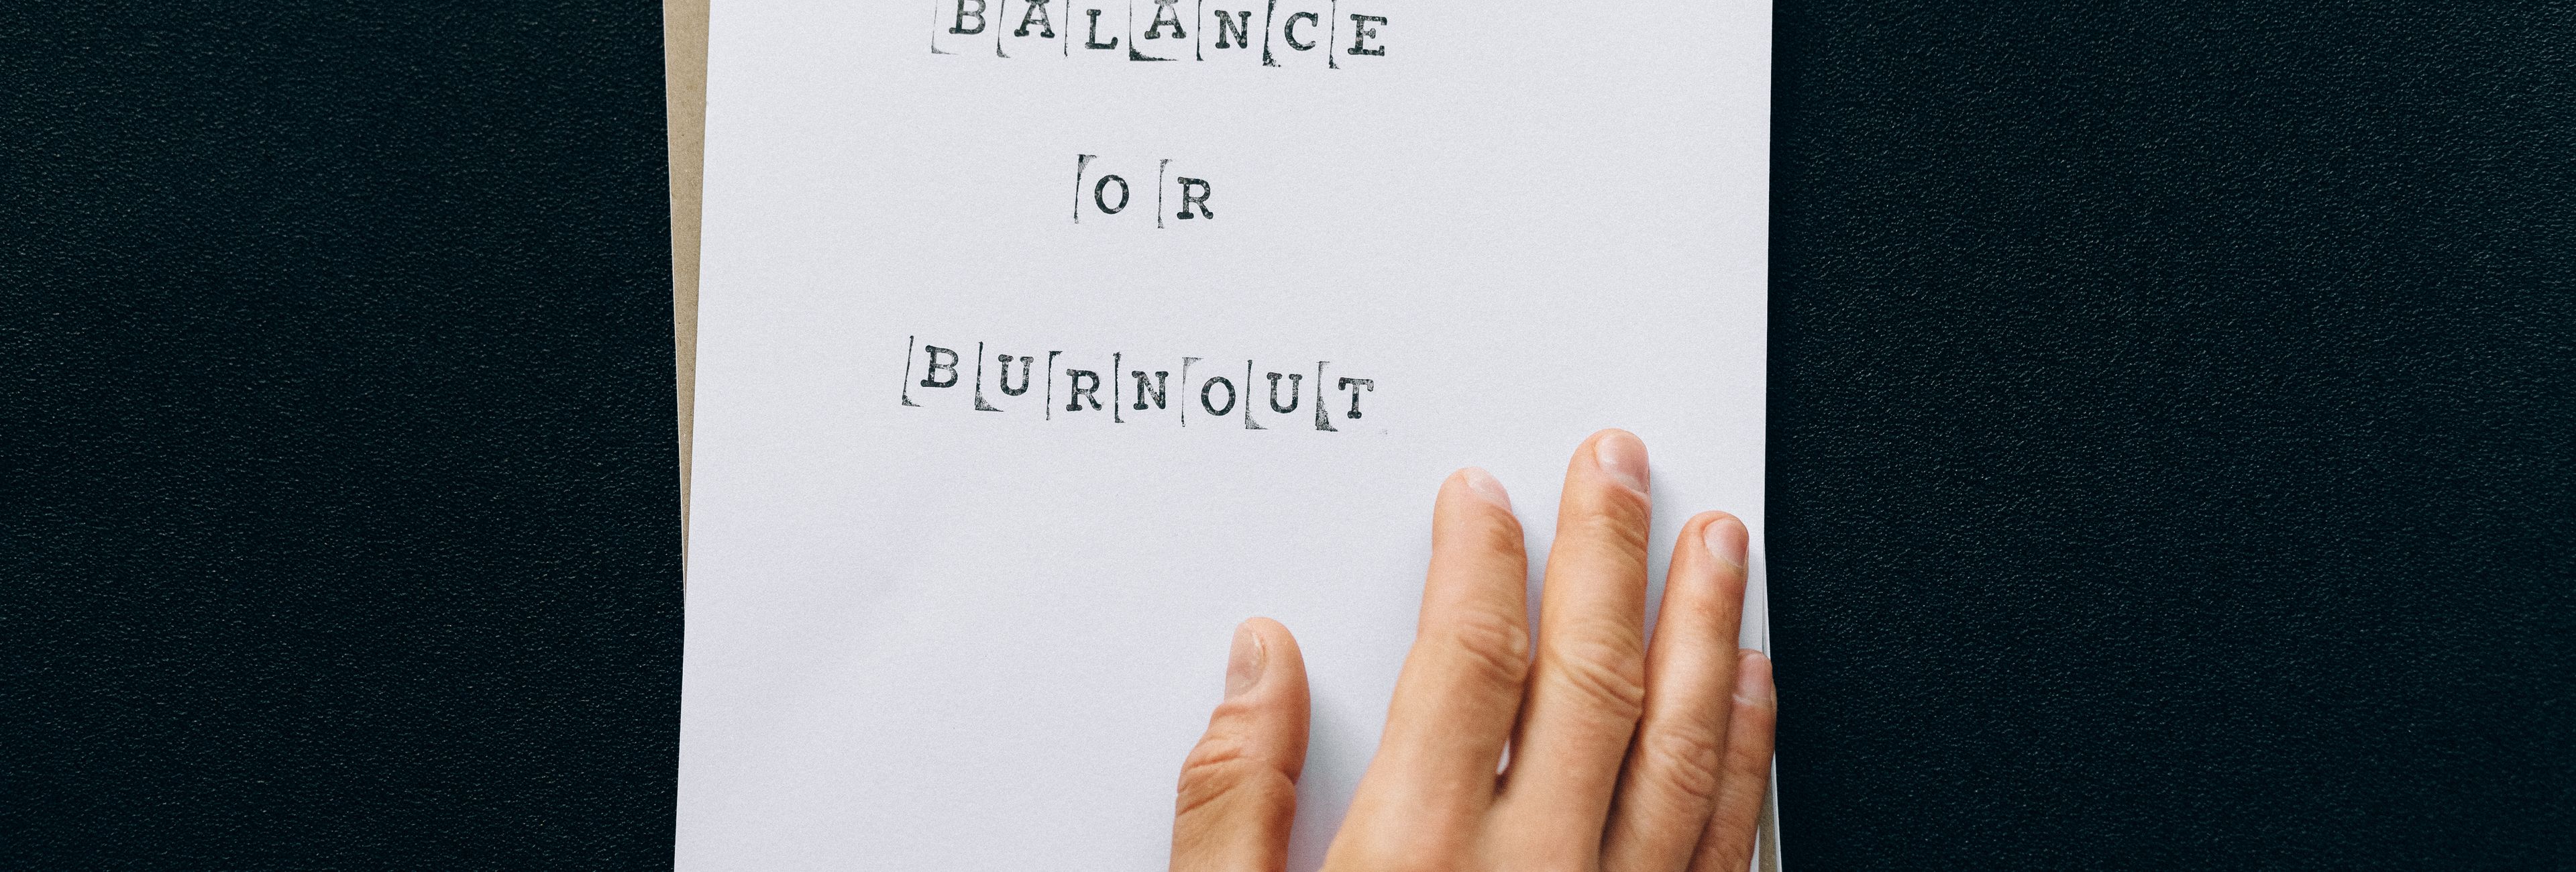 BALANCE
OR
BURNOUT